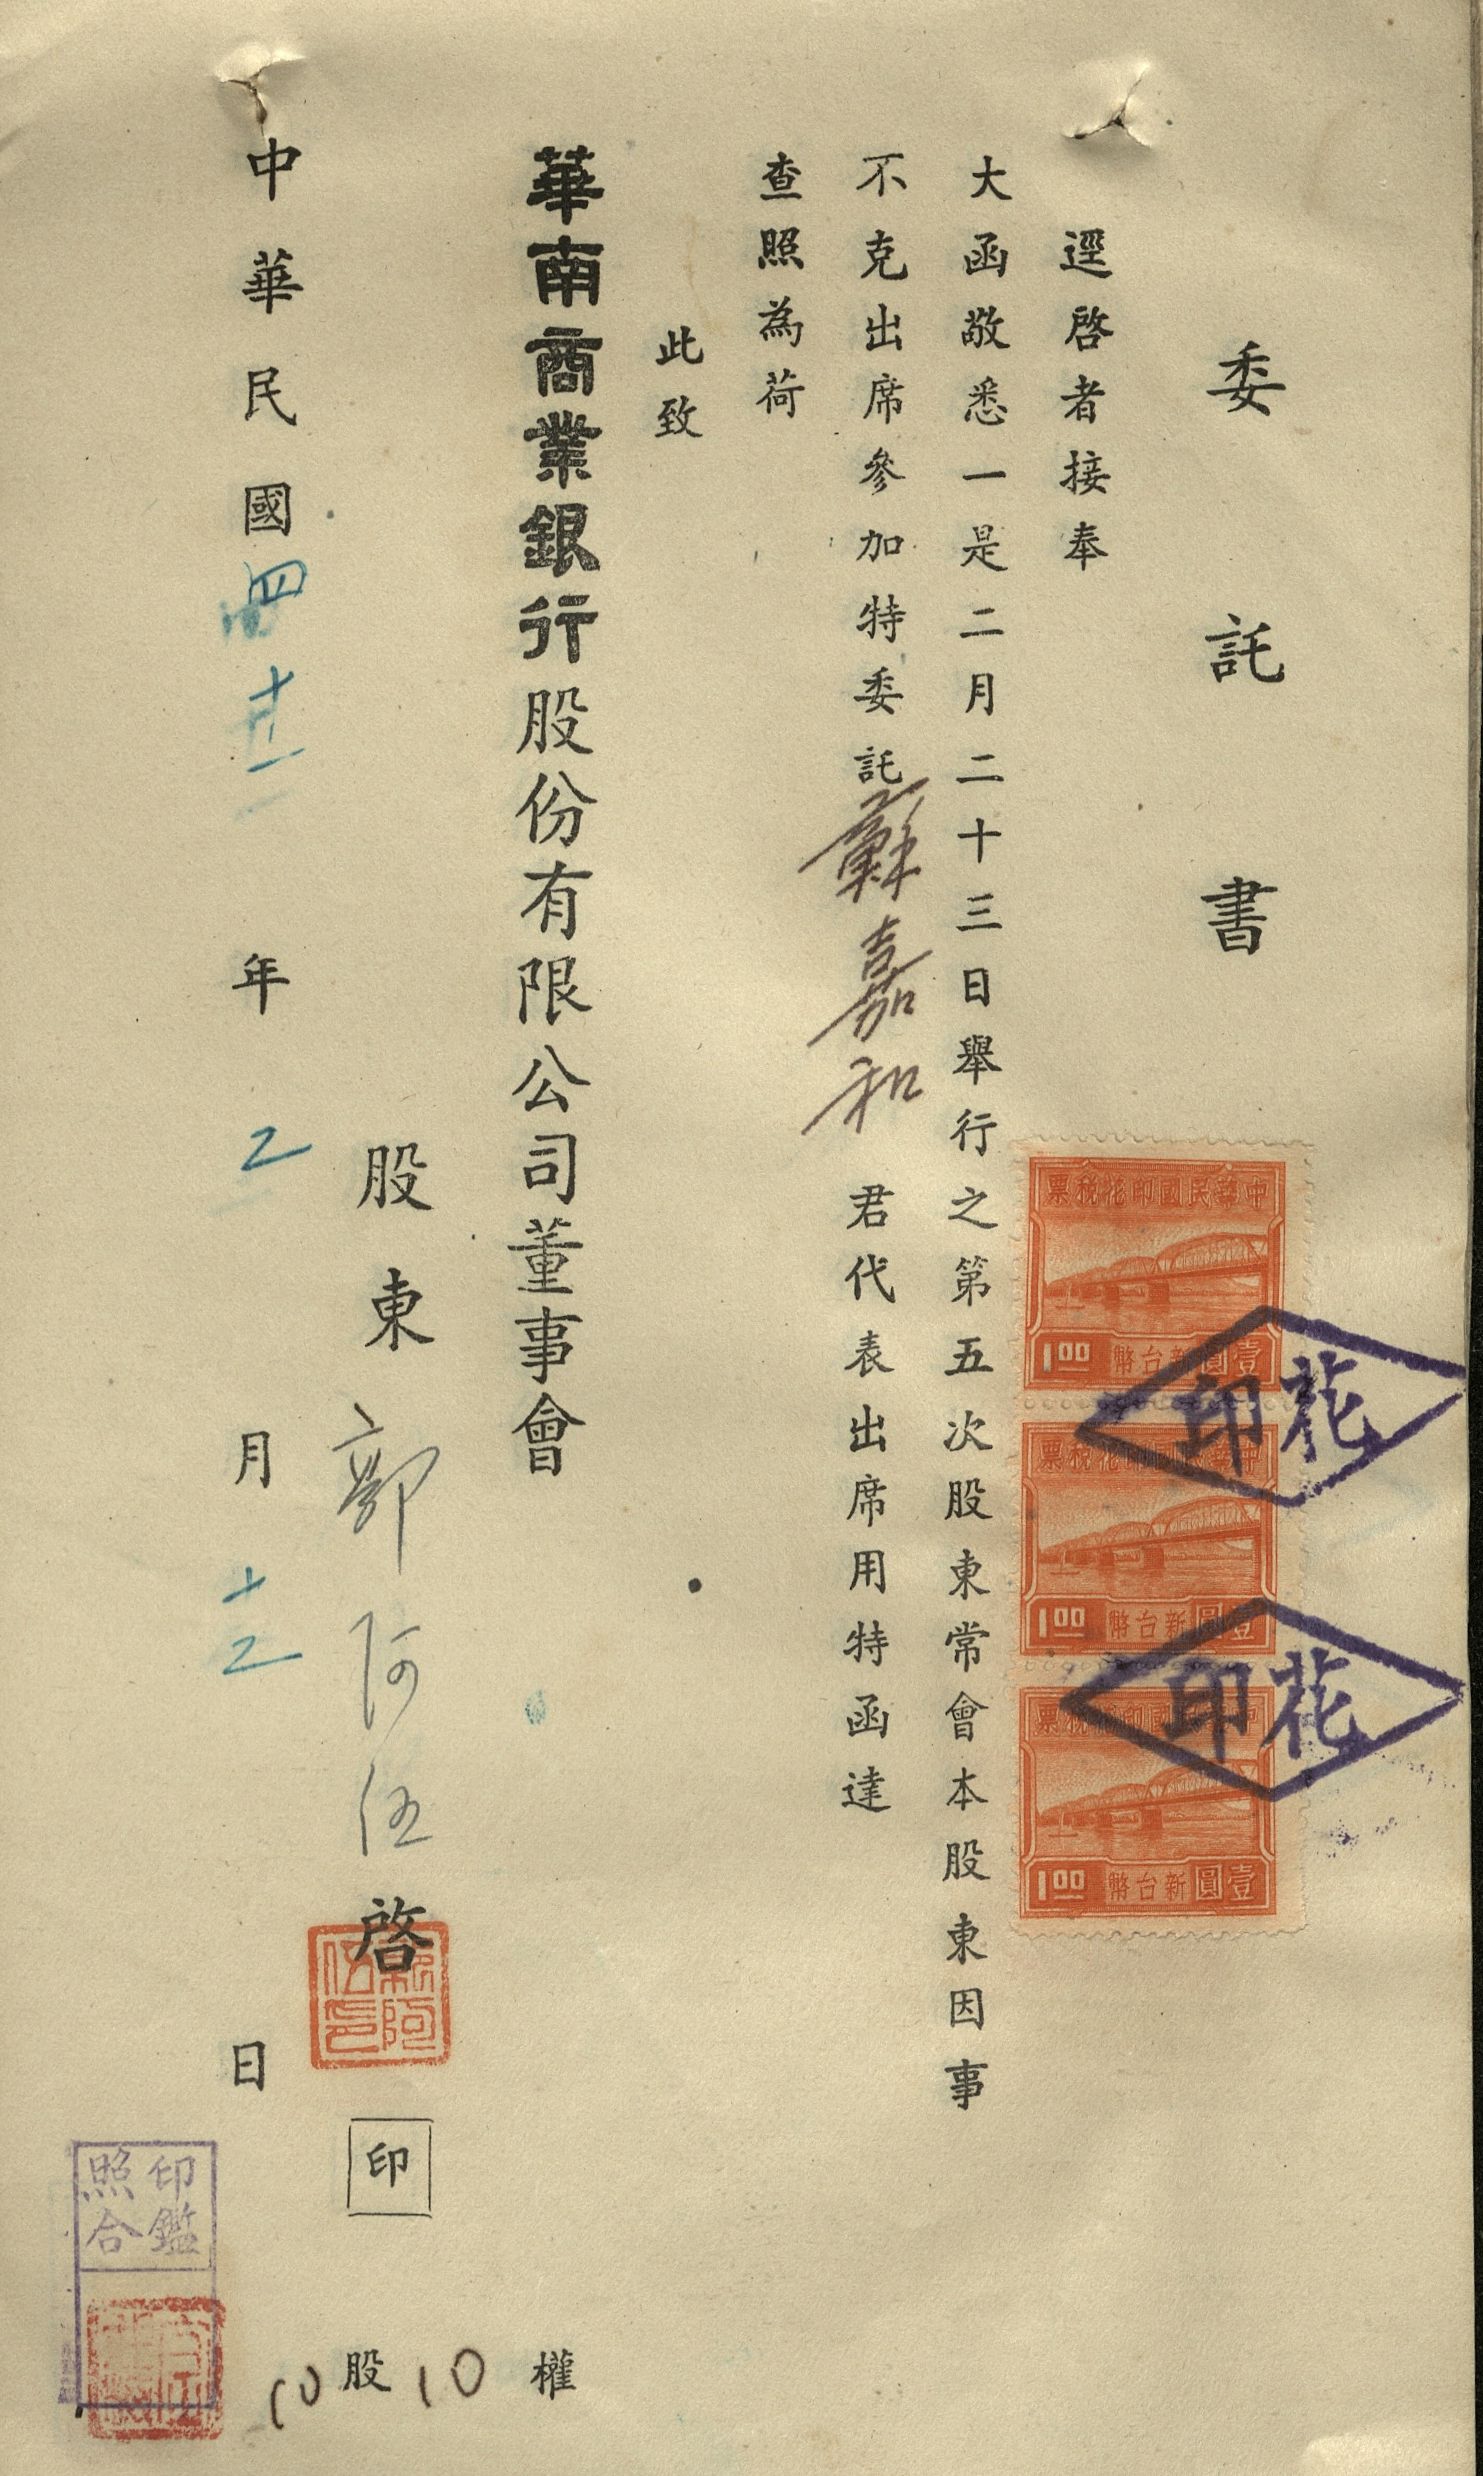 委託書
逕啓者接奉
大函敬悉一是二月二十三日舉行之第五次股東常會本股東因事
不克出席參加特委託蘇嘉和君代表出席用特函達
查照為荷
此致
華南商業銀行股份有限公司董事會
股東郭阿伍啓
印
中華民國四十二年2月十2日
10股10權
中華民國印花稅票
1.00 新台幣壹圓
中華民國印花稅票
1.00 新台幣壹圓
中華民國印花稅票
1.00 新台幣壹圓
印花
印花
郭阿伍印
印鑑照合